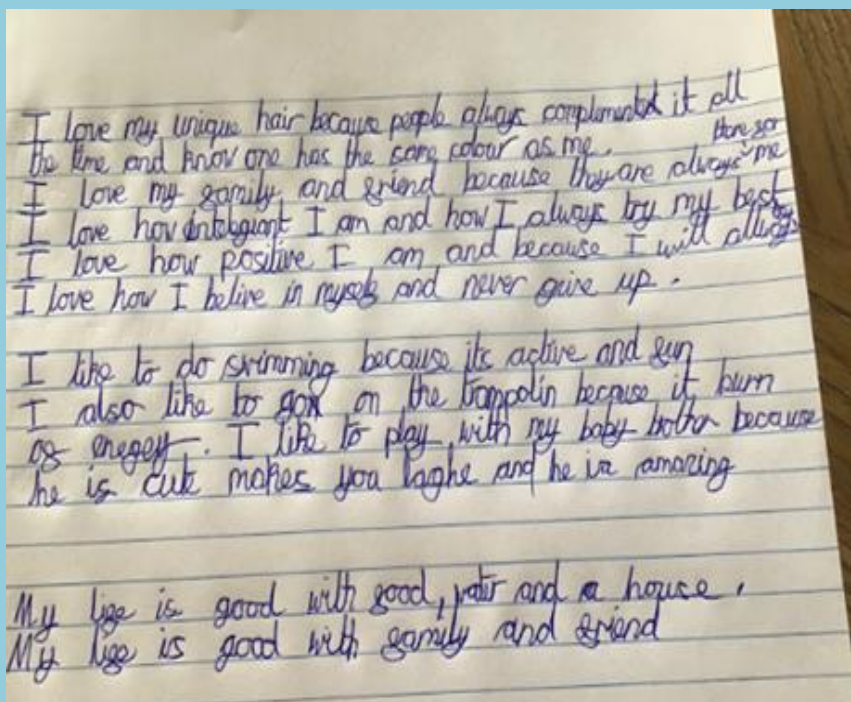 I love my unique hair because people always complimented it all
the time and know one has the same colour as me.
I love my family and friend because they are always there for me
I love how inteligiant I am and how I always try my best
I love how positive I am and because I will always try
I love how I belive in myself and never give up.
I like to do swimming because its active and fun
I also like to go on the trampolin because it burn
of enegey. I like to play with my baby brother because
he is cute makes you laghe and he is amazing
My life is good with food, water and a house.
My life is good with family and friend